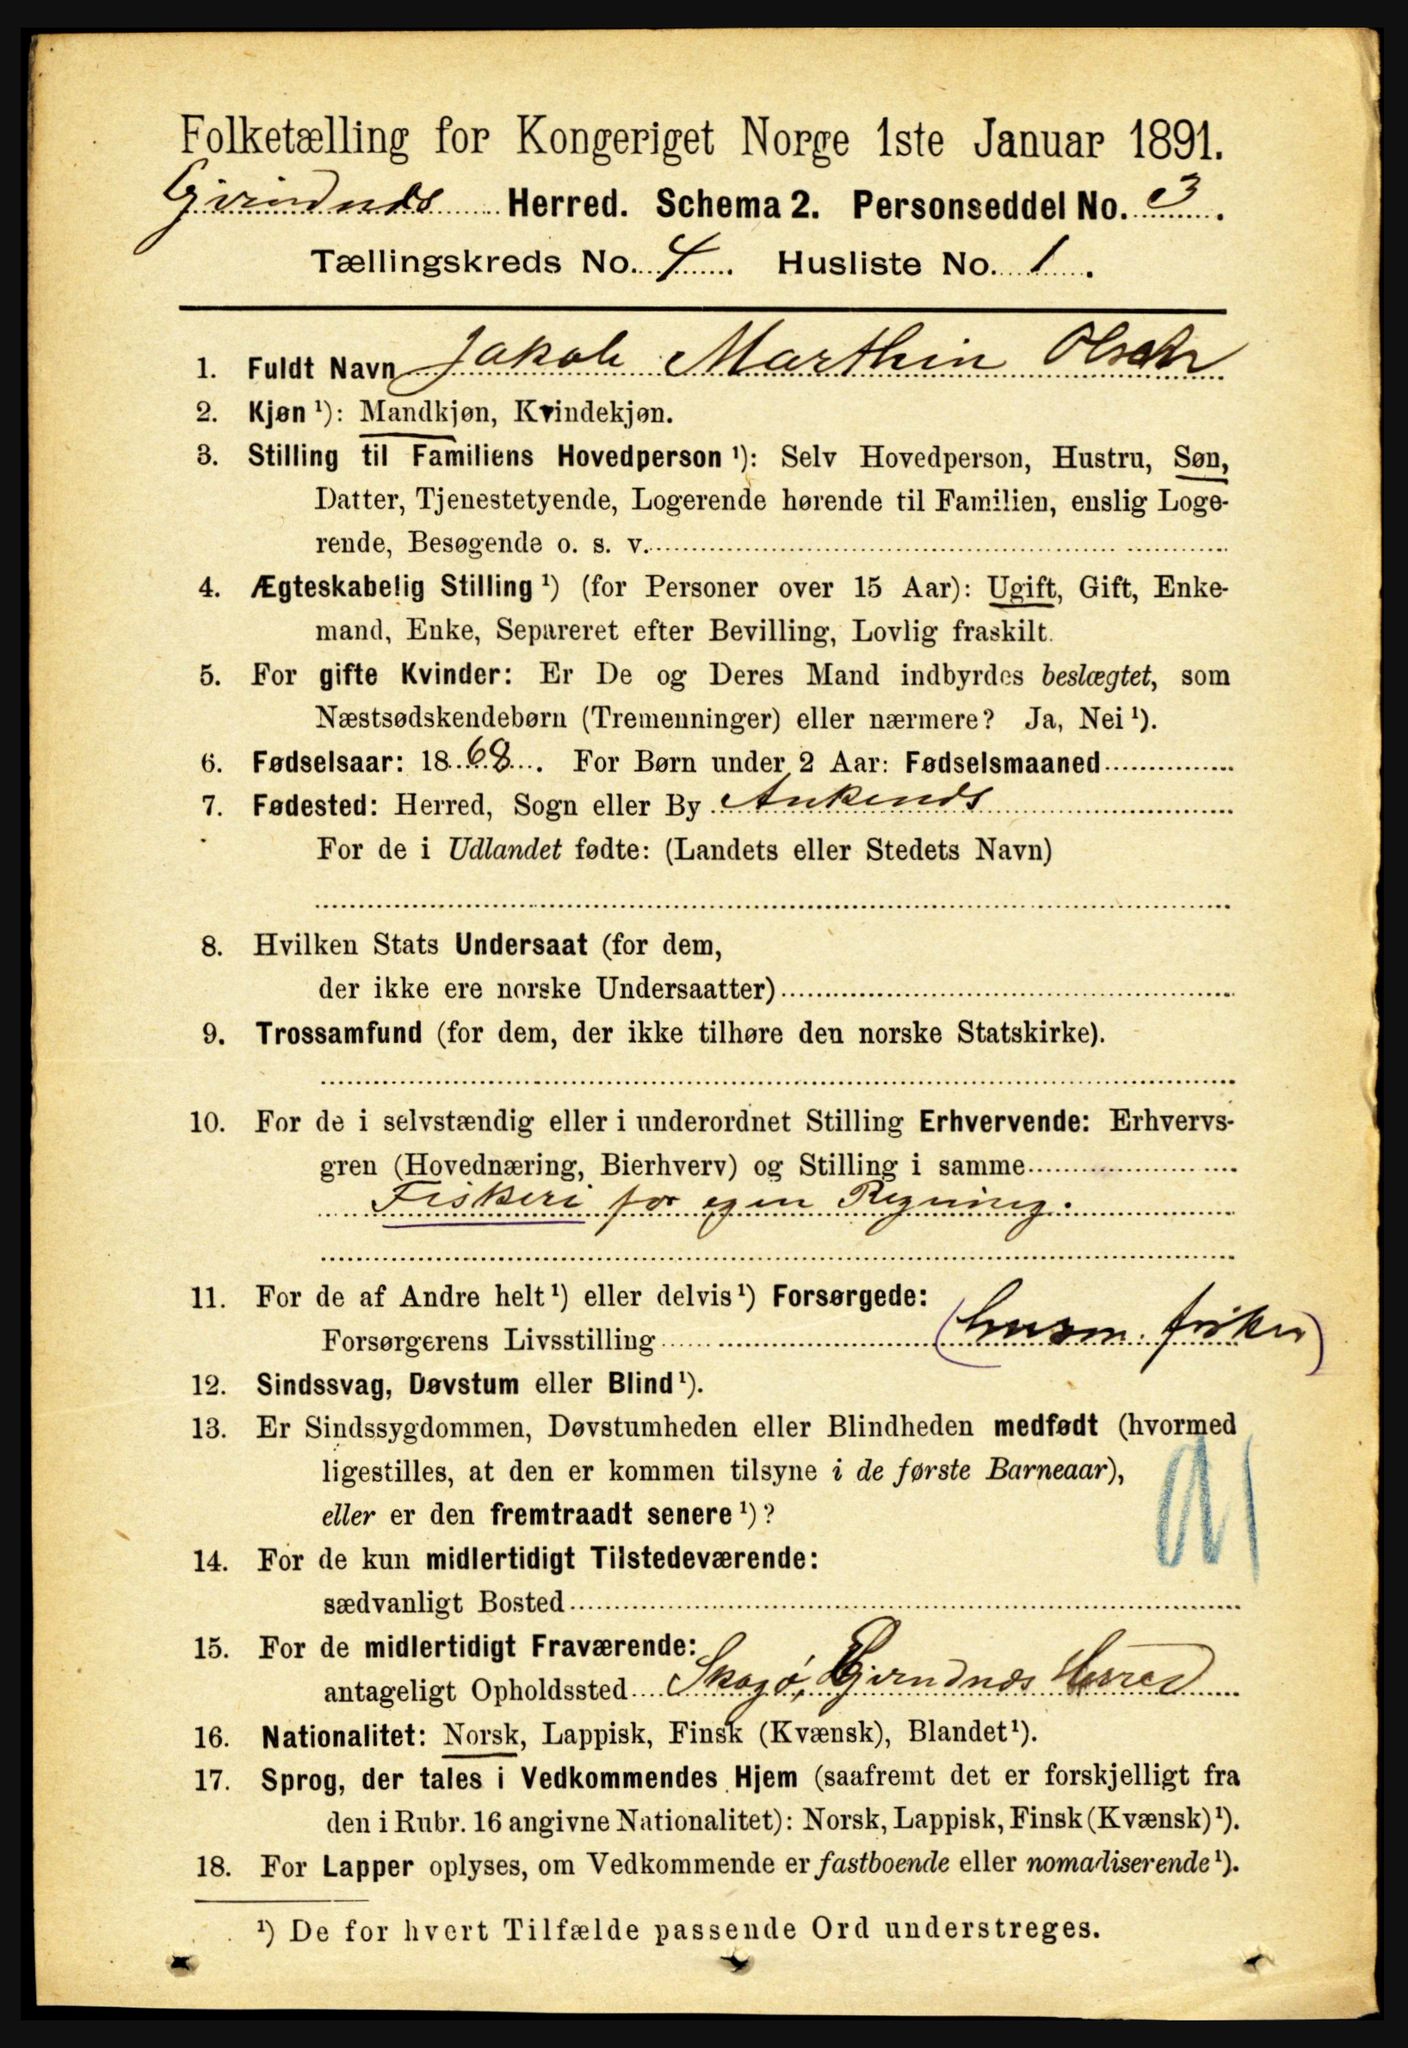 Folketælling for Kongeriget Norge 1ste Januar 1891.
Herred. Schema 2. Personseddel No. 3.
Tællingskreds No. 4. Husliste No. 1.
1. Fuldt Navn Jakob Marthin Olsen
2. Kjøn ¹): Mandkjøn, Kvindekjøn.
3. Stilling til Familiens Hovedperson ¹): Selv Hovedperson, Hustru, Søn,
Datter, Tjenestetyende, Logerende hørende til Familien, enslig Loge-
rende, Besøgende o. s. v.
4. Ægteskabelig Stilling ¹) (for Personer over 15 Aar): Ugift, Gift, Enke-
mand, Enke, Separeret efter Bevilling, Lovlig fraskilt.
5. For gifte Kvinder: Er De og Deres Mand indbyrdes beslægtet, som
Næstsødskendebørn (Tremenninger) eller nærmere? Ja, Nei ¹).
6. Fødselsaar: 1868. For Børn under 2 Aar: Fødselsmaaned
7. Fødested: Herred, Sogn eller By Ankenæs
For de i Udlandet fødte: (Landets eller Stedets Navn)
8. Hvilken Stats Undersaat (for dem,
der ikke ere norske Undersaatter)
9. Trossamfund (for dem, der ikke tilhøre den norske Statskirke).
10. For de i selvstændig eller i underordnet Stilling Erhvervende: Erhvervs-
gren (Hovednæring, Bierhverv) og Stilling i samme
Fiskeri for egen Regning.
11. For de af Andre helt ¹) eller delvis ¹) Forsørgede:
Forsørgerens Livsstilling (husm. fisker)
12. Sindssvag, Døvstum eller Blind ¹).
13. Er Sindssygdommen, Døvstumheden eller Blindheden medfødt (hvormed
ligestilles, at den er kommen tilsyne i de første Barneaar),
eller er den fremtraadt senere ¹)?
14. For de kun midlertidigt Tilstedeværende:
sædvanligt Bosted
15. For de midlertidigt Fraværende:
antageligt Opholdssted Skogö, Herred
16. Nationalitet: Norsk, Lappisk, Finsk (Kvænsk), Blandet ¹).
17. Sprog, der tales i Vedkommendes Hjem (saafremt det er forskjelligt fra
den i Rubr. 16 angivne Nationalitet): Norsk, Lappisk, Finsk (Kvænsk) ¹).
18. For Lapper oplyses, om Vedkommende er fastboende eller nomadiserende ¹).
¹) De for hvert Tilfælde passende Ord understreges.